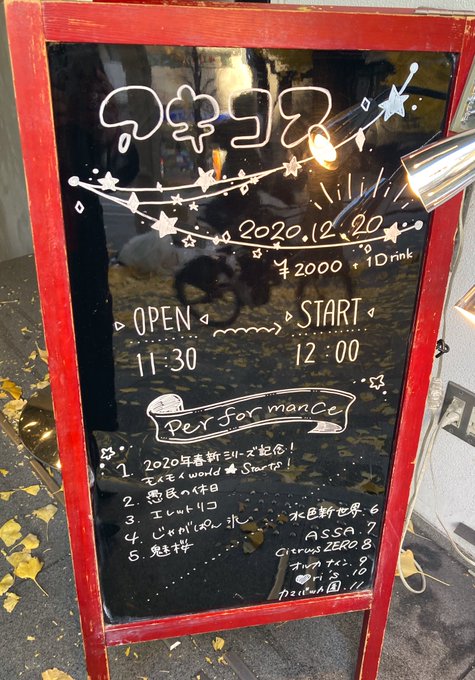 アキコス
2020.12.20
¥2000 + 1Drink
OPEN START
11:30 12:00
Performance
1. 2020年春新シリーズ記念!
モイモイworld★Starts!
2. 愚民の休日
3. エレットリコ
4. じゃがぽん
5. 魅桜
水色新世界.6
ASSA.7
Citrus ZERO.8
オルカナイン.9
♡ri's 10
カマバット園.11